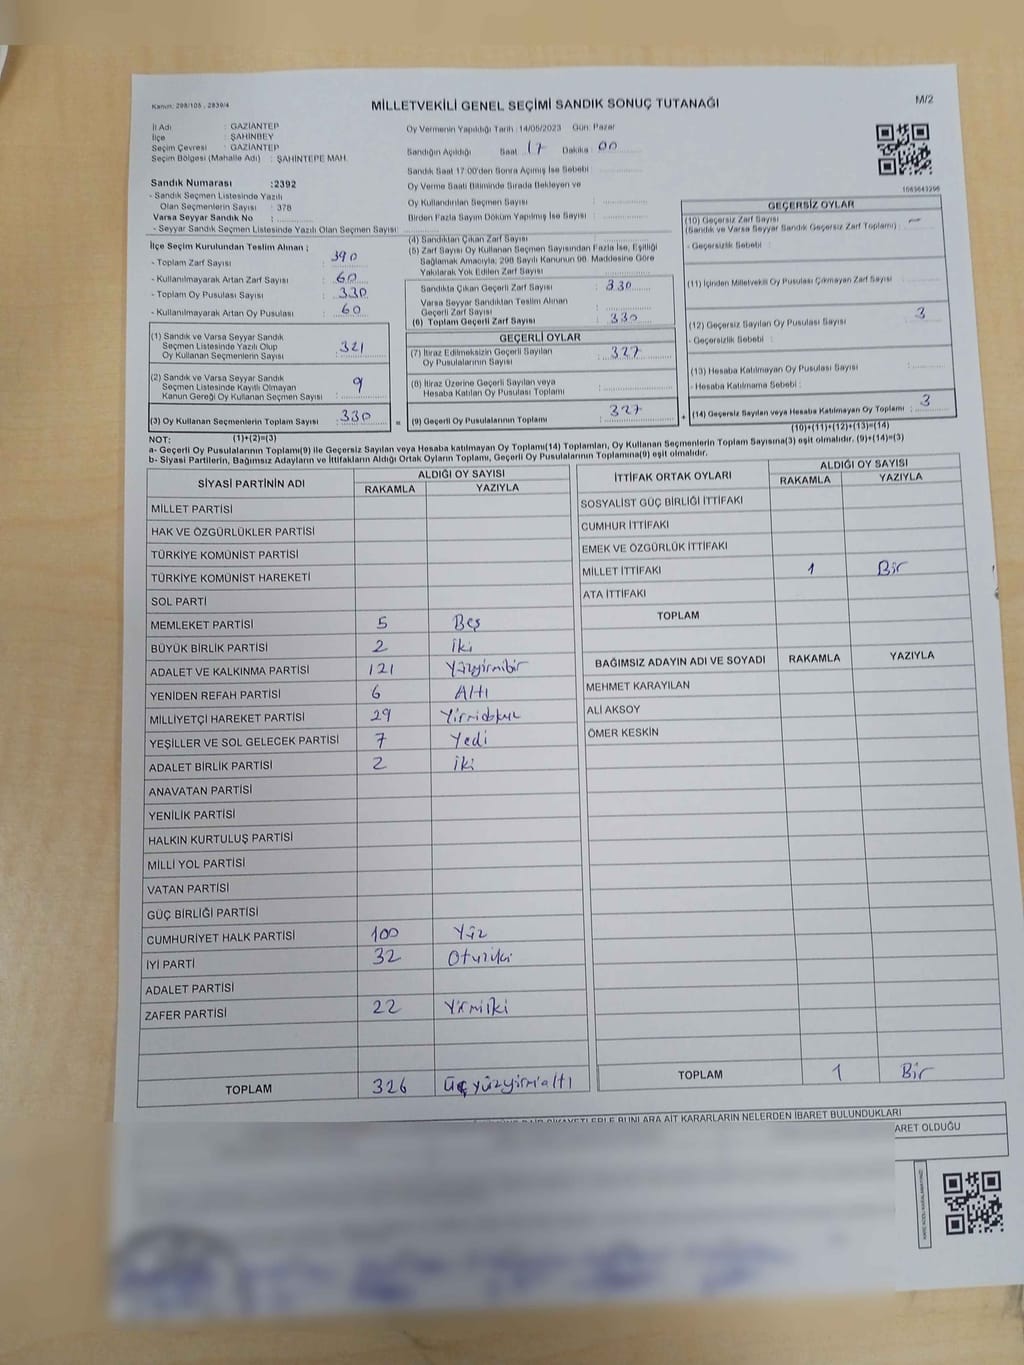 Kanun: 298/105 , 2839/4
MİLLETVEKİLİ GENEL SEÇİMİ SANDIK SONUÇ TUTANAĞI
M/2
İl Adı : GAZİANTEP
İlçe : ŞAHİNBEY
Seçim Çevresi : GAZİANTEP
Seçim Bölgesi (Mahalle Adı) : ŞAHİNTEPE MAH.
Sandık Numarası :2392
- Sandık Seçmen Listesinde Yazılı
Olan Seçmenlerin Sayısı : 378
Varsa Seyyar Sandık No :
- Seyyar Sandık Seçmen Listesinde Yazılı Olan Seçmen Sayısı:
Oy Vermenin Yapıldığı Tarih :14/05/2023 Gün: Pazar
Sandığın Açıldığı Saat 17 Dakika 00
Sandık Saat 17:00'den Sonra Açılmış İse Sebebi :
Oy Verme Saati Bitiminde Sırada Bekleyen ve
Oy Kullandırılan Seçmen Sayısı :
Birden Fazla Sayım Döküm Yapılmış İse Sayısı :
İlçe Seçim Kurulundan Teslim Alınan ;
- Toplam Zarf Sayısı : 390
- Kullanılmayarak Artan Zarf Sayısı : 60
- Toplam Oy Pusulası Sayısı : 330
- Kullanılmayarak Artan Oy Pusulası : 60
(1) Sandık ve Varsa Seyyar Sandık
Seçmen Listesinde Yazılı Olup
Oy Kullanan Seçmenlerin Sayısı : 321
(2) Sandık ve Varsa Seyyar Sandık
Seçmen Listesinde Kayıtlı Olmayan
Kanun Gereği Oy Kullanan Seçmen Sayısı : 9
(3) Oy Kullanan Seçmenlerin Toplam Sayısı : 330 =
(1)+(2)=(3)
(4) Sandıktan Çıkan Zarf Sayısı :
(5) Zarf Sayısı Oy Kullanan Seçmen Sayısından Fazla İse, Eşitliği
Sağlamak Amacıyla, 298 Sayılı Kanunun 98. Maddesine Göre
Yakılarak Yok Edilen Zarf Sayısı
Sandıkta Çıkan Geçerli Zarf Sayısı : 330
Varsa Seyyar Sandıktan Teslim Alınan
Geçerli Zarf Sayısı
(6) Toplam Geçerli Zarf Sayısı : 330
GEÇERLİ OYLAR
(7) İtiraz Edilmeksizin Geçerli Sayılan
Oy Pusulalarının Sayısı : 327
(8) İtiraz Üzerine Geçerli Sayılan veya
Hesaba Katılan Oy Pusulası Toplamı :
(9) Geçerli Oy Pusulalarının Toplamı : 327 +
GEÇERSİZ OYLAR
(10) Geçersiz Zarf Sayısı
(Sandık ve Varsa Seyyar Sandık Geçersiz Zarf Toplamı) : —
- Geçersizlik Sebebi :
(11) İçinden Milletvekili Oy Pusulası Çıkmayan Zarf Sayısı :
(12) Geçersiz Sayılan Oy Pusulası Sayısı : 3
- Geçersizlik Sebebi :
(13) Hesaba Katılmayan Oy Pusulası Sayısı :
- Hesaba Katılmama Sebebi :
(14) Geçersiz Sayılan veya Hesaba Katılmayan Oy Toplamı : 3
(10)+(11)+(12)+(13)=(14)
NOT:
a- Geçerli Oy Pusulalarının Toplamı(9) ile Geçersiz Sayılan veya Hesaba katılmayan Oy Toplamı(14) Toplamları, Oy Kullanan Seçmenlerin Toplam Sayısına(3) eşit olmalıdır. (9)+(14)=(3)
b- Siyasi Partilerin, Bağımsız Adayların ve İttifakların Aldığı Oyların Toplamı, Geçerli Oy Pusulalarının Toplamına(9) eşit olmalıdır.
SİYASİ PARTİNİN ADI ALDIĞI OY SAYISI
RAKAMLA YAZIYLA
MİLLET PARTİSİ
HAK VE ÖZGÜRLÜKLER PARTİSİ
TÜRKİYE KOMÜNİST PARTİSİ
TÜRKİYE KOMÜNİST HAREKETİ
SOL PARTİ
MEMLEKET PARTİSİ 5 Beş
BÜYÜK BİRLİK PARTİSİ 2 iki
ADALET VE KALKINMA PARTİSİ 121 Yüzyirmibir
YENİDEN REFAH PARTİSİ 6 Altı
MİLLİYETÇİ HAREKET PARTİSİ 29 Yirmidokuz
YEŞİLLER VE SOL GELECEK PARTİSİ 7 Yedi
ADALET BİRLİK PARTİSİ 2 iki
ANAVATAN PARTİSİ
YENİLİK PARTİSİ
HALKIN KURTULUŞ PARTİSİ
MİLLİ YOL PARTİSİ
VATAN PARTİSİ
GÜÇ BİRLİĞİ PARTİSİ
CUMHURİYET HALK PARTİSİ 100 Yüz
İYİ PARTİ 32 Otuziki
ADALET PARTİSİ
ZAFER PARTİSİ 22 Yirmiiki
TOPLAM 326 Üçyüzyirmialtı
İTTİFAK ORTAK OYLARI ALDIĞI OY SAYISI
RAKAMLA YAZIYLA
SOSYALİST GÜÇ BİRLİĞİ İTTİFAKI
CUMHUR İTTİFAKI
EMEK VE ÖZGÜRLÜK İTTİFAKI
MİLLET İTTİFAKI 1 Bir
ATA İTTİFAKI
TOPLAM
BAĞIMSIZ ADAYIN ADI VE SOYADI RAKAMLA YAZIYLA
MEHMET KARAYILAN
ALİ AKSOY
ÖMER KESKİN
TOPLAM 1 Bir
BUNLARA AİT KARARLARIN NELERDEN İBARET BULUNDUKLARI
ARET OLDUĞU